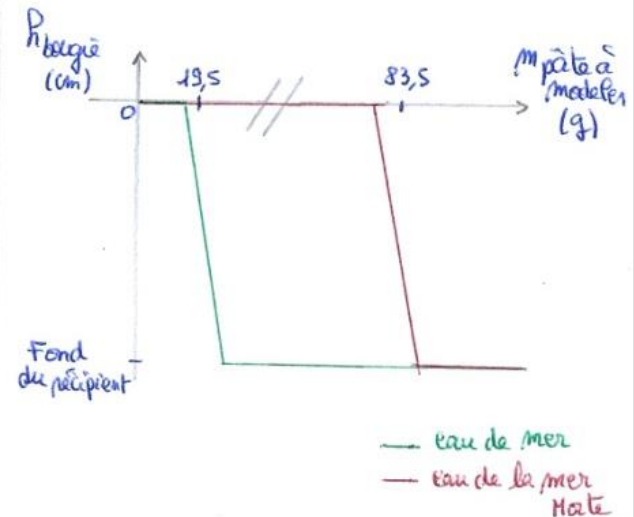 h bougie
(cm)
19,5
83,5
m pâte à
modeler
(g)
0
Fond
du récipient
eau de mer
eau de la mer
Morte